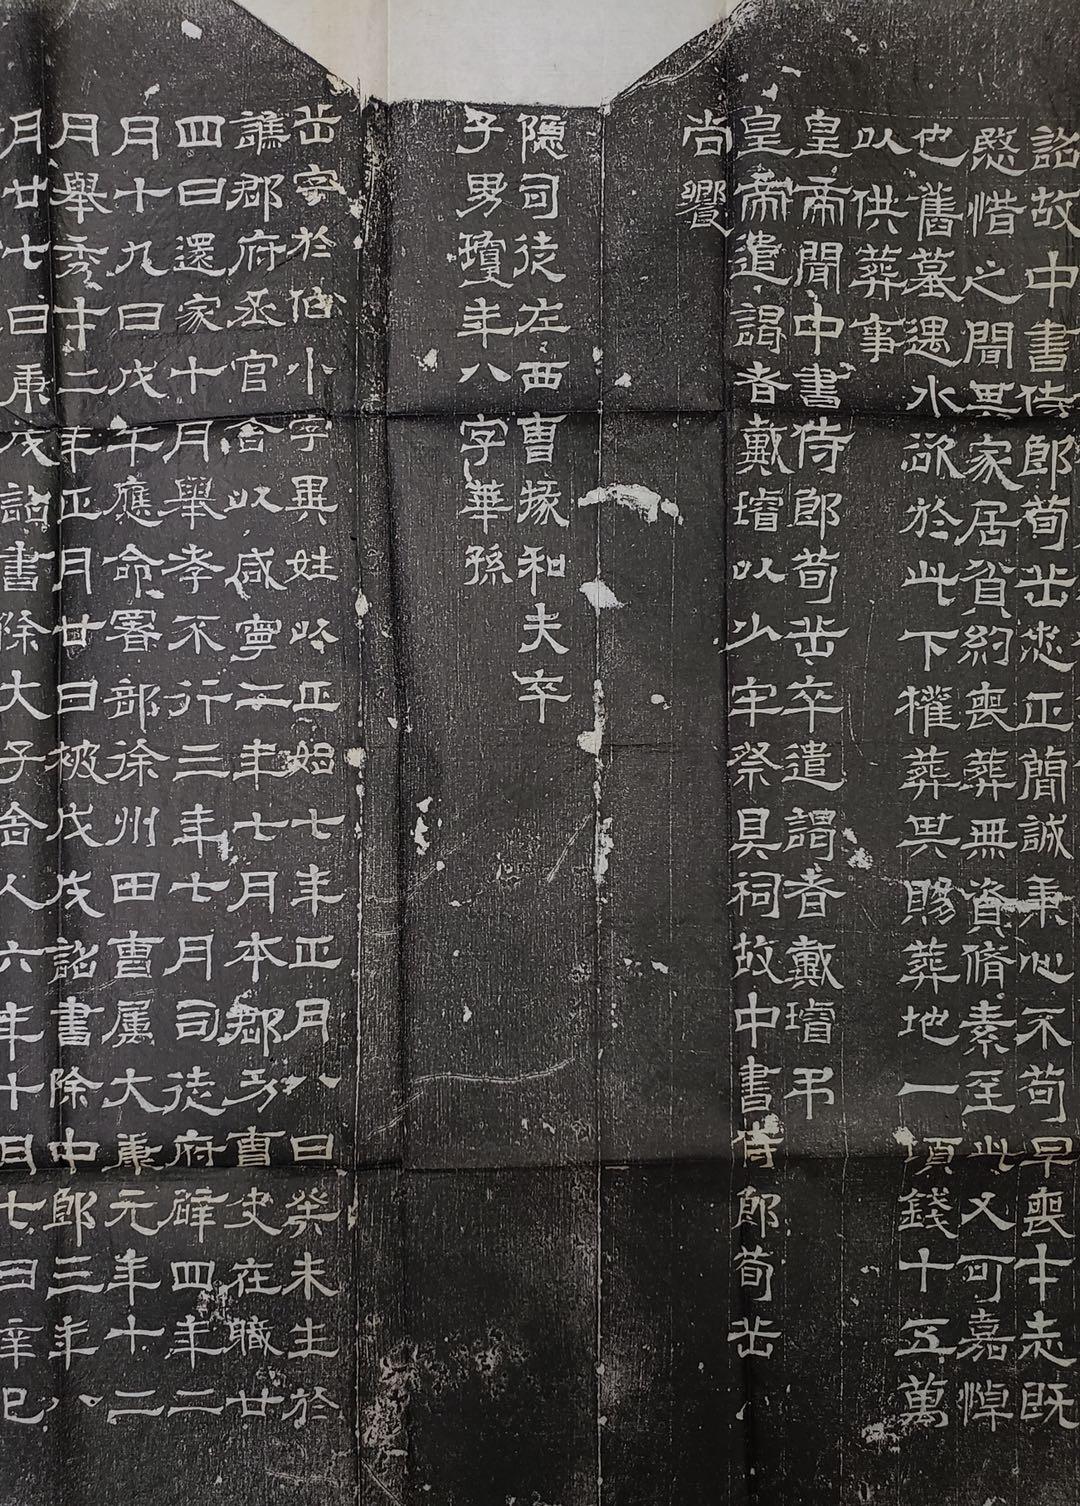 詔故中書侍郎荀岳忠正簡誠秉心不苟早喪才志既
愍惜之聞其家居貧約喪葬無資脩素至此又可嘉悼
也舊墓遇水欲於此下權葬其賜葬地一頃錢十五萬
以供葬事
皇帝聞中書侍郎荀岳卒遣謁者戴璿弔
皇帝遣謁者戴璿以少牢祭具祠故中書侍郎荀岳
尚饗
隱司徒左西曹掾和夫卒
子男瓊年八字華孫
岳字於伯小字異姓以正始七年正月八日癸未生於
譙郡府丞官舍以咸寧二年七月本郡功曹史在職廿
四日還家十月舉孝不行三年七月司徒府辟四年二
月十九日戊午應命署部徐州田曹屬大康元年十二
月舉秀才二年正月廿日被戊戌詔書除中郎三年八
月廿七日庚戌詔書除大子舍人六年十月七日辛巳